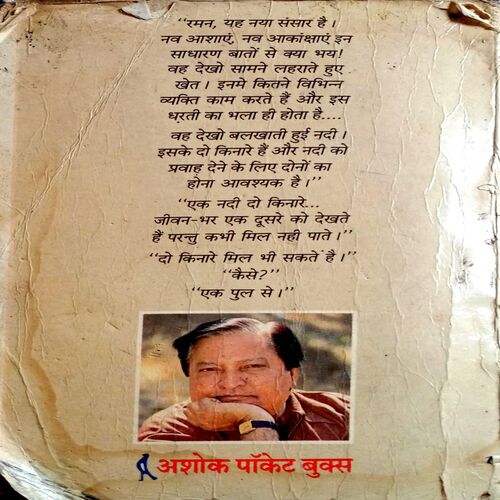 “रमन, यह नया संसार है।
नव आशाएं, नव आकांक्षाएं इन
साधारण बातों से क्या भय!
वह देखो सामने लहराते हुए
खेत। इनमे कितने विभिन्न
व्यक्ति काम करते हैं और इस
धरती का भला ही होता है....
वह देखो बलखाती हुई नदी।
इसके दो किनारे हैं और नदी को
प्रवाह देने के लिए दोनों का
होना आवश्यक है।”
“एक नदी दो किनारे...
जीवन-भर एक दूसरे को देखते
हैं परन्तु कभी मिल नही पाते।”
“दो किनारे मिल भी सकते है।”
“कैसे?”
“एक पुल से।”
अशोक पॉकेट बुक्स